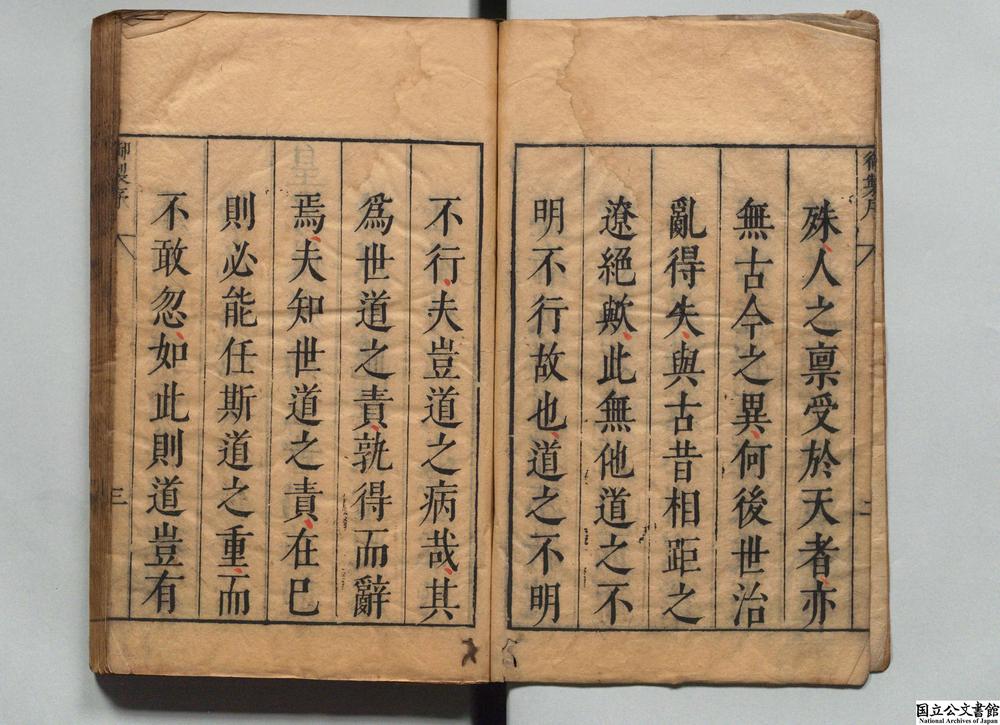 御製序
殊人之稟受於天者亦
無古今之異何後世治
亂得失與古昔相距之
遼絶歟此無他道之不
明不行故也道之不明
二
不行夫豈道之病哉其
爲世道之責孰得而辭
焉夫知世道之責在已
則必能任斯道之重而
不敢忽如此則道豈有
御製序
三
国立公文書館
National Archives of Japan